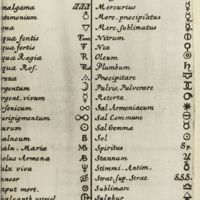 malgama āāā Mercurius
ntimonium Merc. præcipitatus
qua Merc. sublimatus
qua fortis Nitrum
qua fortis Nox
qua Regia Oleum
qua Ros. Plumbum
rena Præcipitare
rgentum Pulvis, Pulverare
rgent. vivum Retorta
rgent. Sal Armoniacum
uripigmentum Sal Commune
urum Sal Gemma
alneum Sol
aln. Mariæ Spiritus Sp.
olus Armena Stannum
alx viva Stimmi, Antim.
ancer Strat. sup. Strat. S.S.S.
aput mort. Sublimare
Sulphur